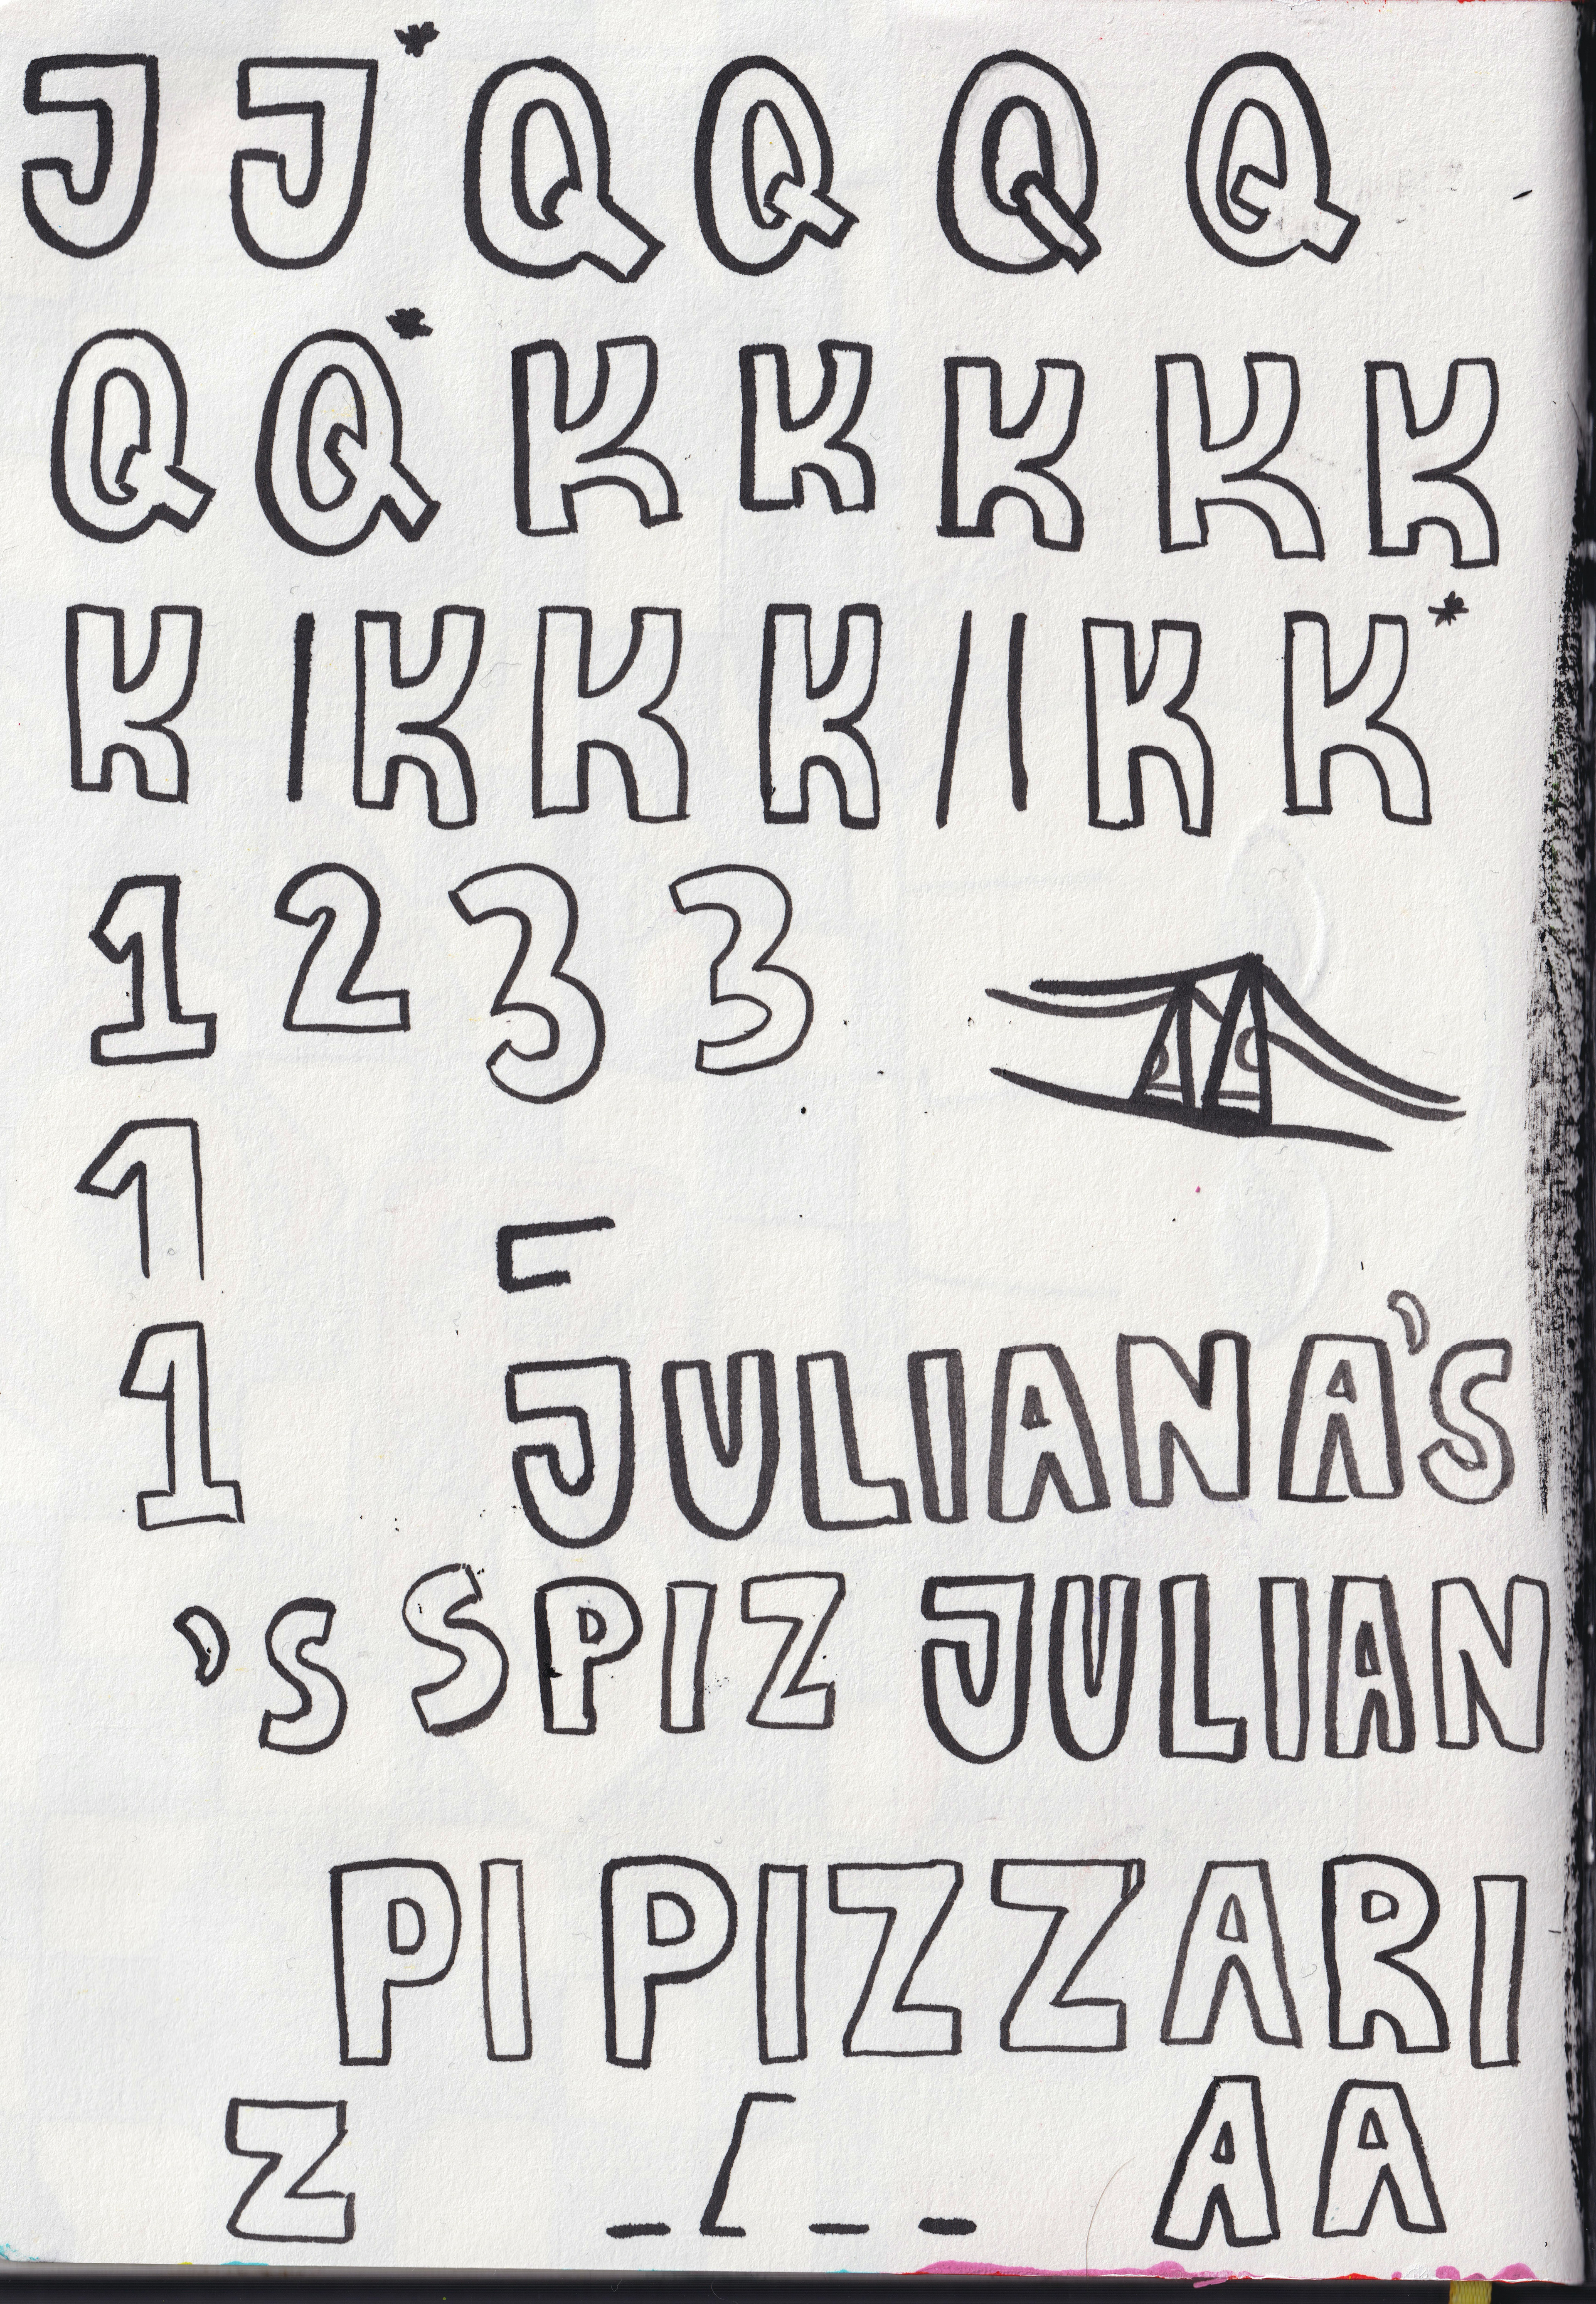 J J* Q Q Q Q
Q Q* K K K K K
K | K K K / | K K*
1 2 3 3
1
1 JULIANA'S
'S SPIZ JULIAN
PI PIZZARI
Z A A